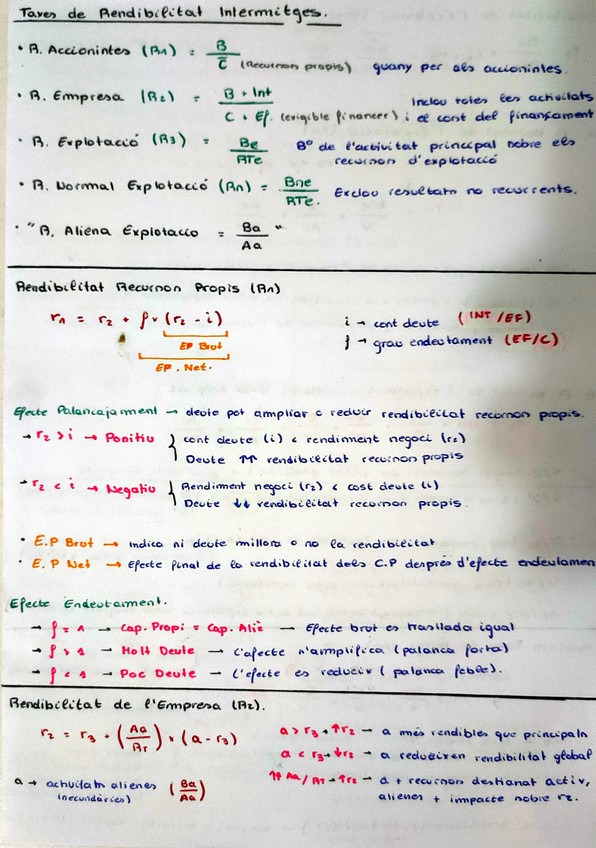 Taxes de Rendibilitat Intermitges.
• R. Accionistes (R1) = B / C̄ (Recursos propis) guany per als accionistes.
• R. Empresa (R2) = B + Int / C + Ef. (exigible financer) Inclou totes les activitats i el cost del finançament
• R. Explotació (R3) = Be / RTe Bº de l'activitat principal sobre els recursos d'explotació
• R. Normal Explotació (Rn) = Bne / RTe. Exclou resultats no recurrents.
• "R. Aliena Explotacio = Ba / Aa"
Rendibilitat Recursos Propis (R1)
r1 = r2 + f × (r2 - i)
EP Brut
EP. Net.
i → cost deute (INT/EF)
f → grau endeutament (EF/C)
Efecte Palancajament → deute pot ampliar o reduir rendibilitat recursos propis.
→ r2 > i → Positiu } cost deute (i) < rendiment negoci (r2)
Deute ↑↑ rendibilitat recursos propis
→ r2 < i → Negatiu { Rendiment negoci (r2) < cost deute (i)
Deute ↓↓ rendibilitat recursos propis.
• E.P Brut → Indica si deute millora o no la rendibilitat
• E.P Net → Efecte final de la rendibilitat dels C.P després d'efecte endeutamen
Efecte Endeutament.
→ f = 1 → Cap. Propi = Cap. Aliè → Efecte brut es trasllada igual
→ f > 1 → Molt Deute → L'efecte s'amplifica (palanca forta)
→ f < 1 → Poc Deute → L'efecte es redueix (palanca feble).
Rendibilitat de l'Empresa (R2).
r2 = r3 + (Aa / AT) × (a - r3)
a → activitats alienes (Ba / Aa)
(secundàries)
a > r3 → ↑r2 → a més rendibles que principals
a < r3 → ↓r2 → a redueixen rendibilitat global
↑↑ Aa / AT → ↑r2 → a + recursos destianat activ,
alienes + impacte sobre r2.